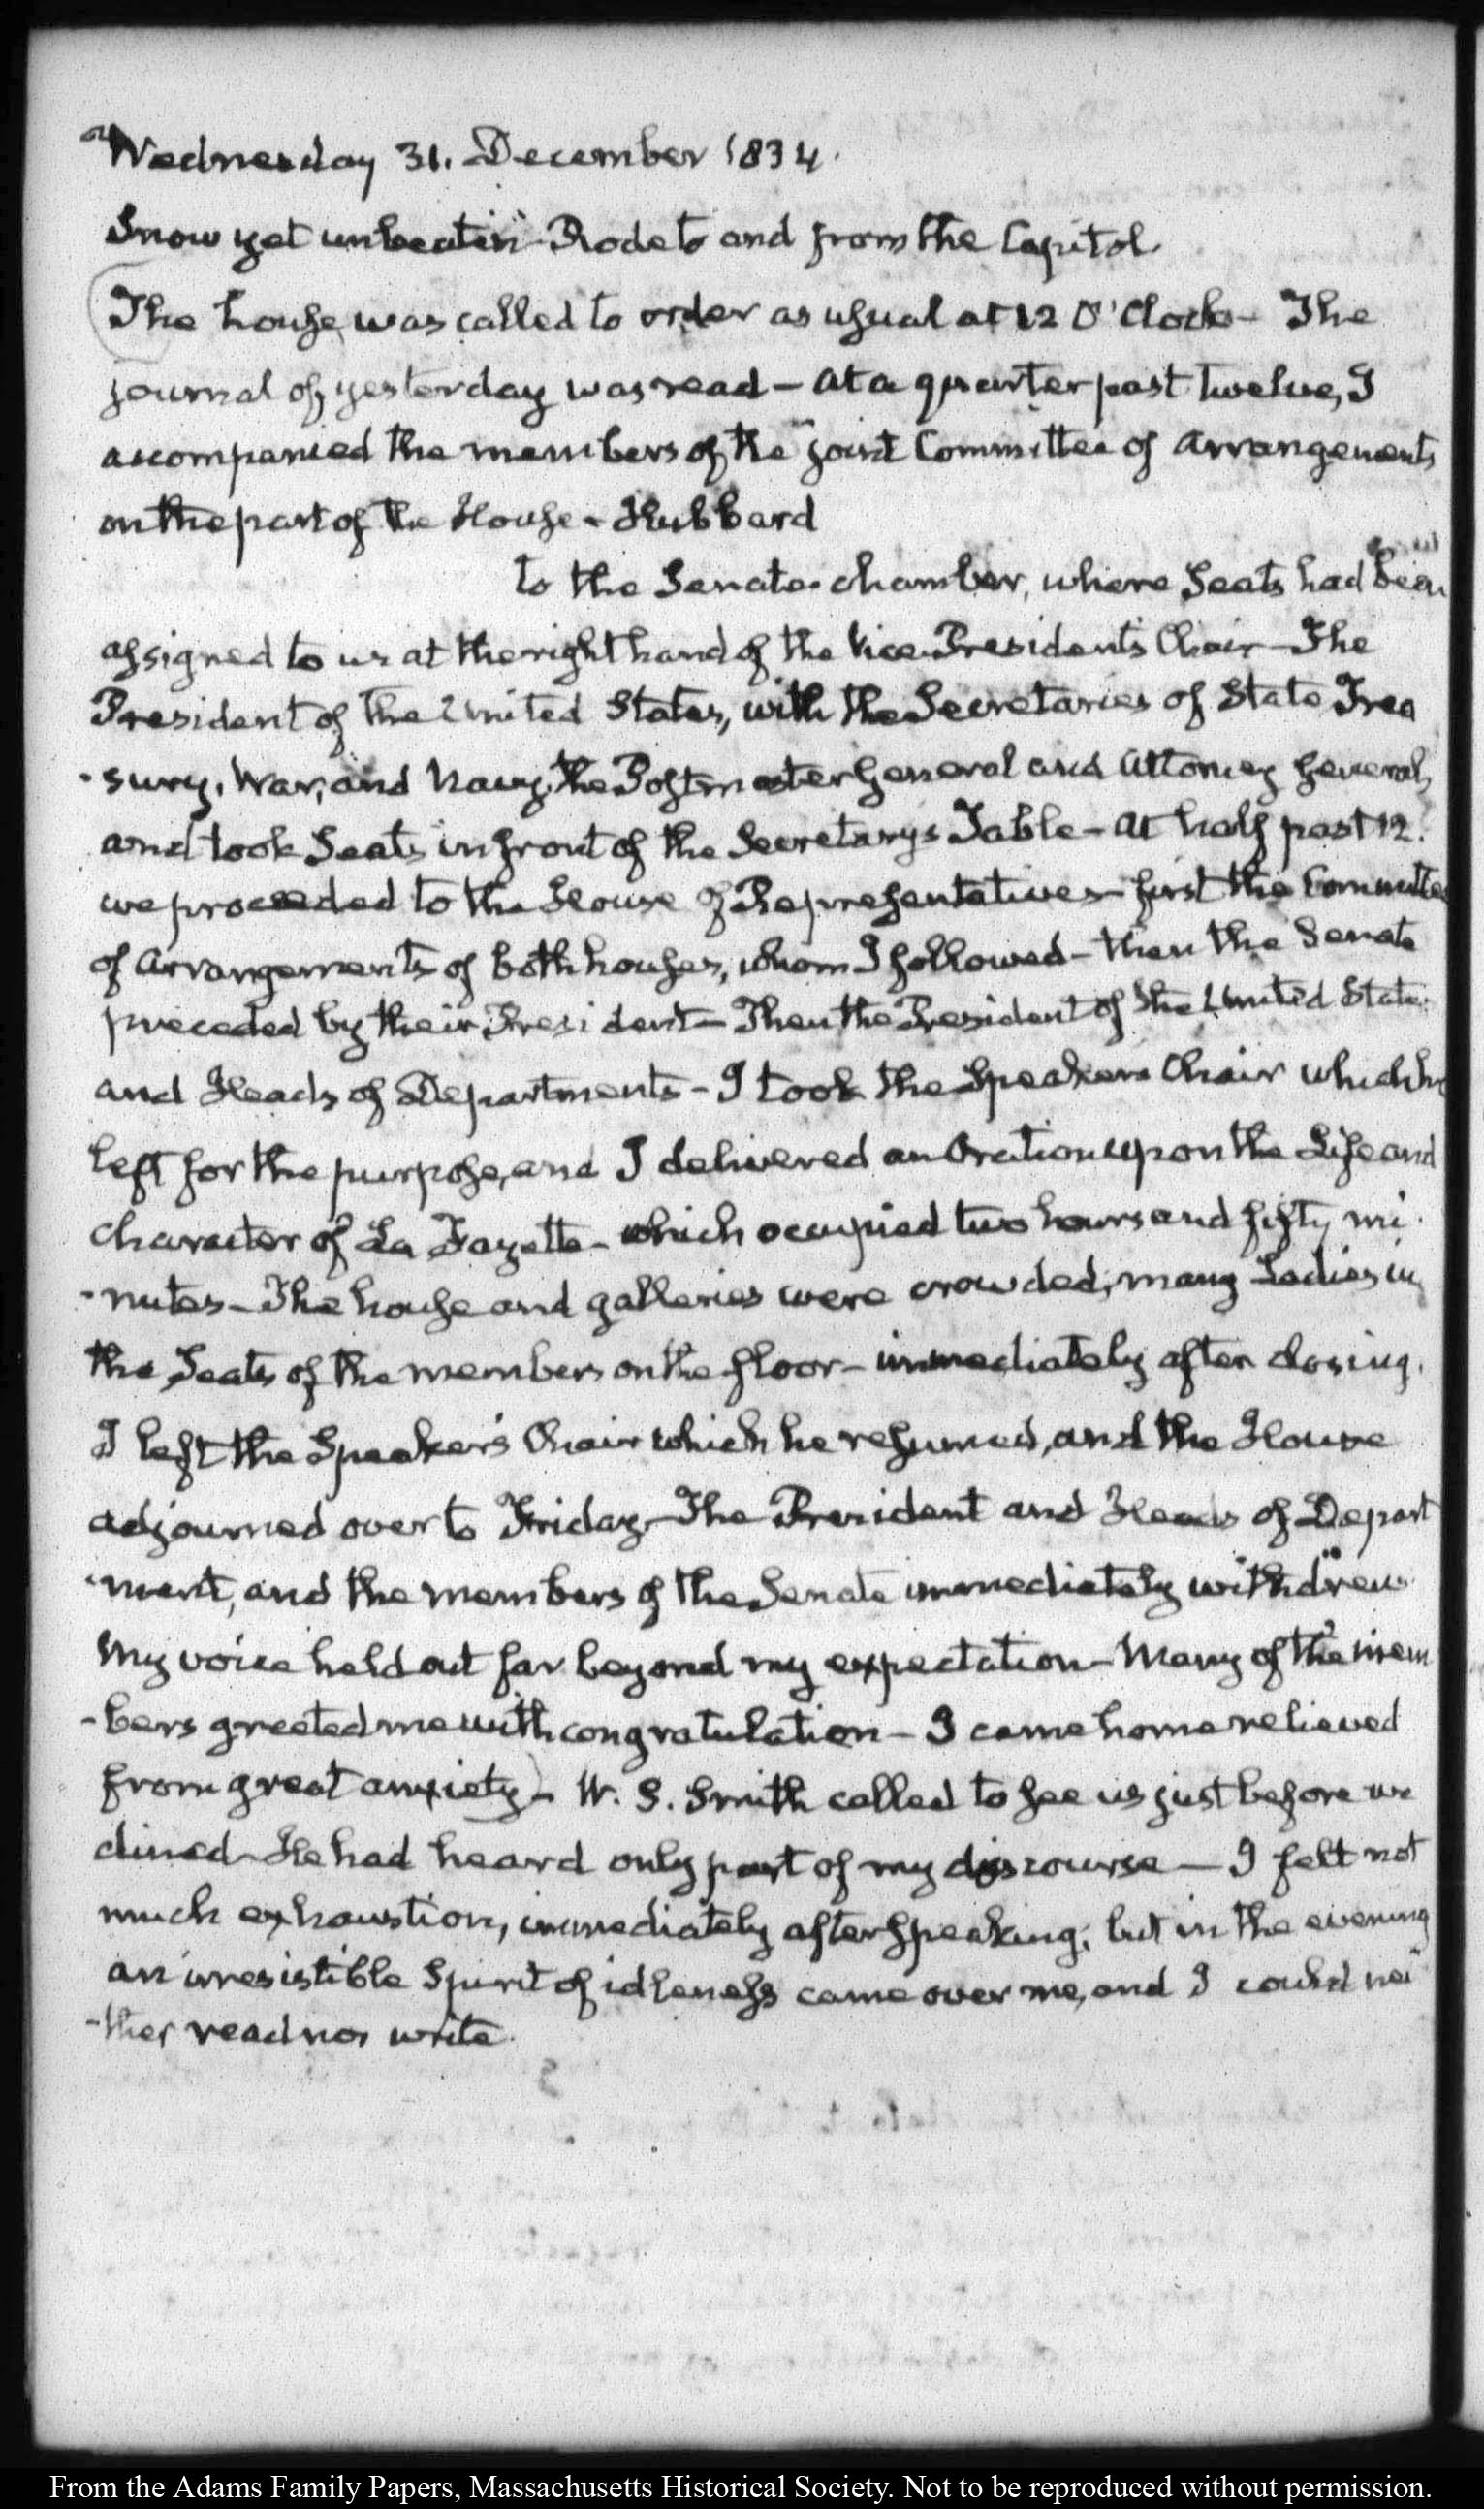 Wednesday 31. December 1834.
Snow yet unbeaten Rode to and from the Capitol.
The house was called to order as usual at 12 O'Clock — The
journal of yesterday was read — At a quarter past twelve, I
accompanied the members of the joint Committee of Arrangements
on the part of the House — Hubbard
to the Senate-chamber, where Seats had been
assigned to us at the right hand of the Vice-President's Chair — The
President of the United States, with the Secretaries of State Trea
-sury, War, and Navy, the Postmaster General and Attorney General,
and took Seats in front of the Secretary's Table — At half past 12.
we proceeded to the House of Representatives — first the Committee
of Arrangements of both houses, whom I followed — then the Senate
preceded by their President — Then the President of the United States
and Heads of Departments — I took the Speakers Chair which he
left for the purpose, and I delivered an Oration upon the Life and
character of La Fayette — which occupied two hours and fifty mi
-nutes — The house and galleries were crowded; many Ladies in
the Seats of the members on the floor — immediately after closing.
I left the Speaker's Chair which he resumed, and the House
adjourned over to Friday — The President and Heads of Depart
-ment, and the members of the Senate immediately withdrew.
My voice held out far beyond my expectation — Many of the mem
-bers greeted me with congratulation — I came home relieved
from great anxiety — W. S. Smith called to see us just before we
dined — He had heard only part of my discourse — I felt not
much exhaustion, immediately after speaking; but in the evening
an irresistible Spirit of idleness came over me, and I could nei
-ther read nor write.
From the Adams Family Papers, Massachusetts Historical Society. Not to be reproduced without permission.